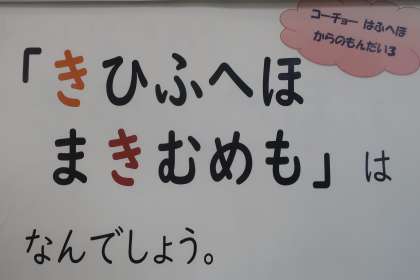 コーチョー はふへほ
からのもんだい3
「きひふへほ
まきむめも」は
なんでしょう。